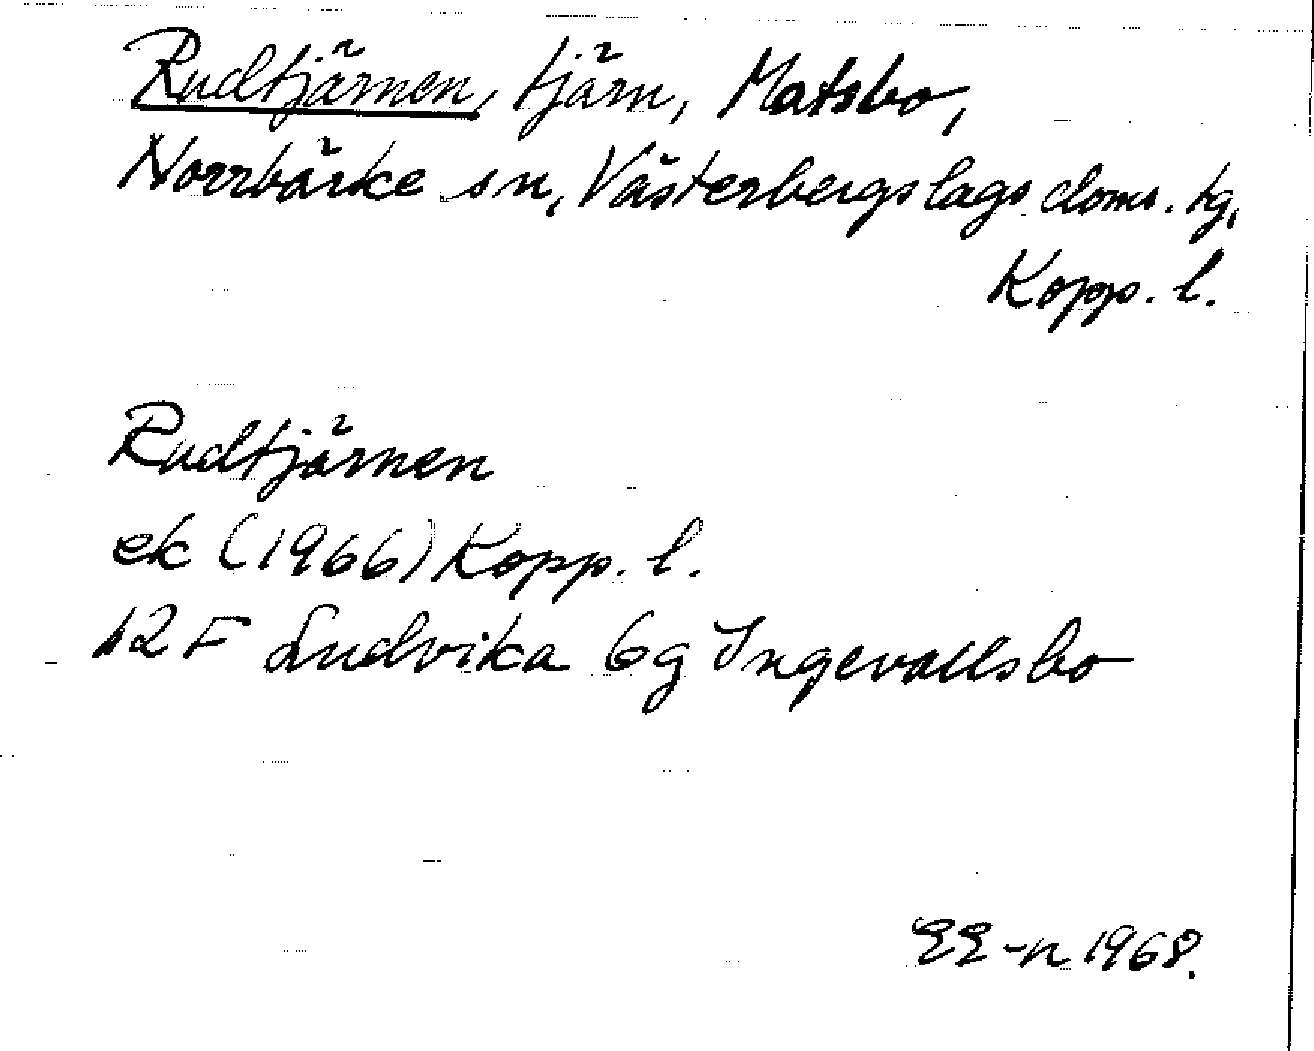 Rudtjärnen, tjärn, Matsbo,
Norrbärke sn, Västerbergslags doms. tg,
Kopp. l.
Rudtjärnen
ek (1966) Kopp. l.
12 F Ludvika 6g Ingevallsbo
EE-n 1968.